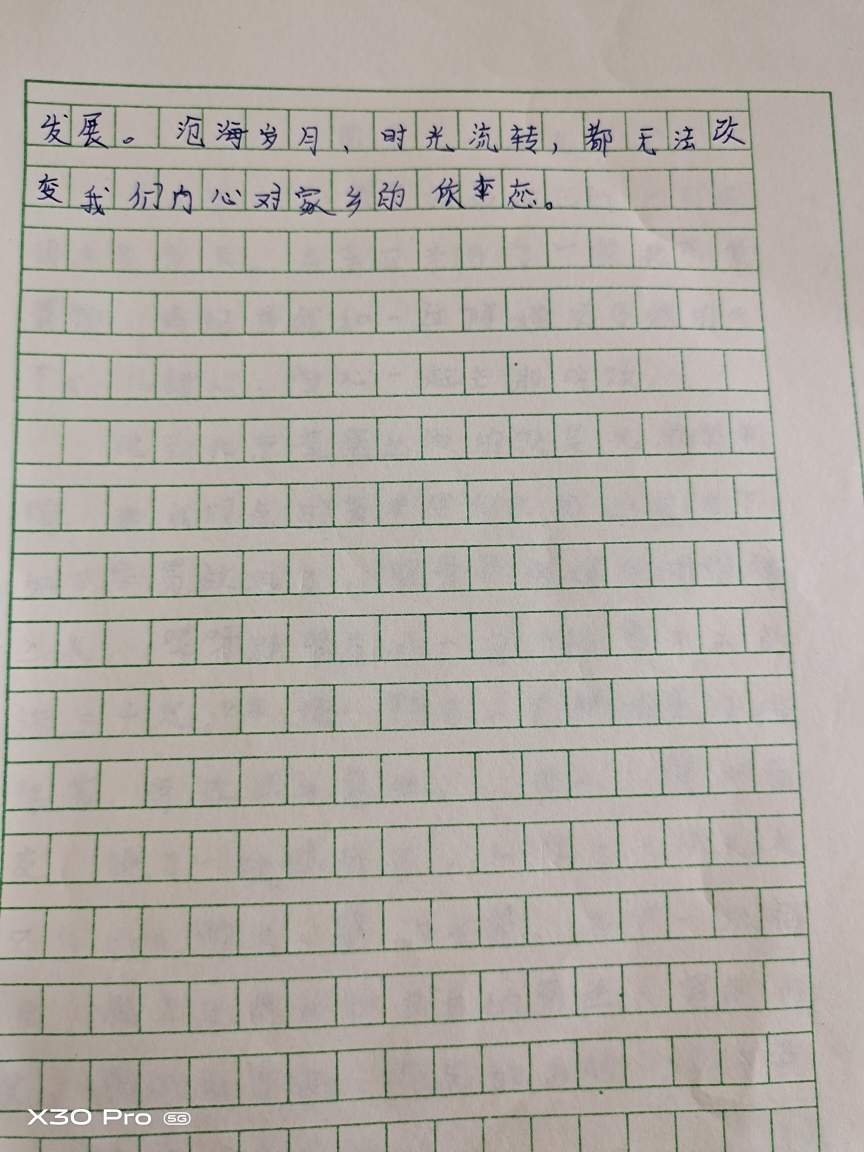 发展。沧海岁月、时光流转，都无法改
变我们内心对家乡的依恋。
X30 Pro 5G